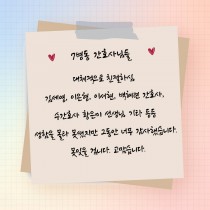 7병동 간호사님들
대체적으로 친절하심.
김세영, 이은형, 이서현, 박혜연 간호사,
수간호사 황은미 선생님, 기타 등등
성함을 몰라 못썼지만 그동안 너무 감사했습니다.
복잊을 겁니다. 고맙습니다.